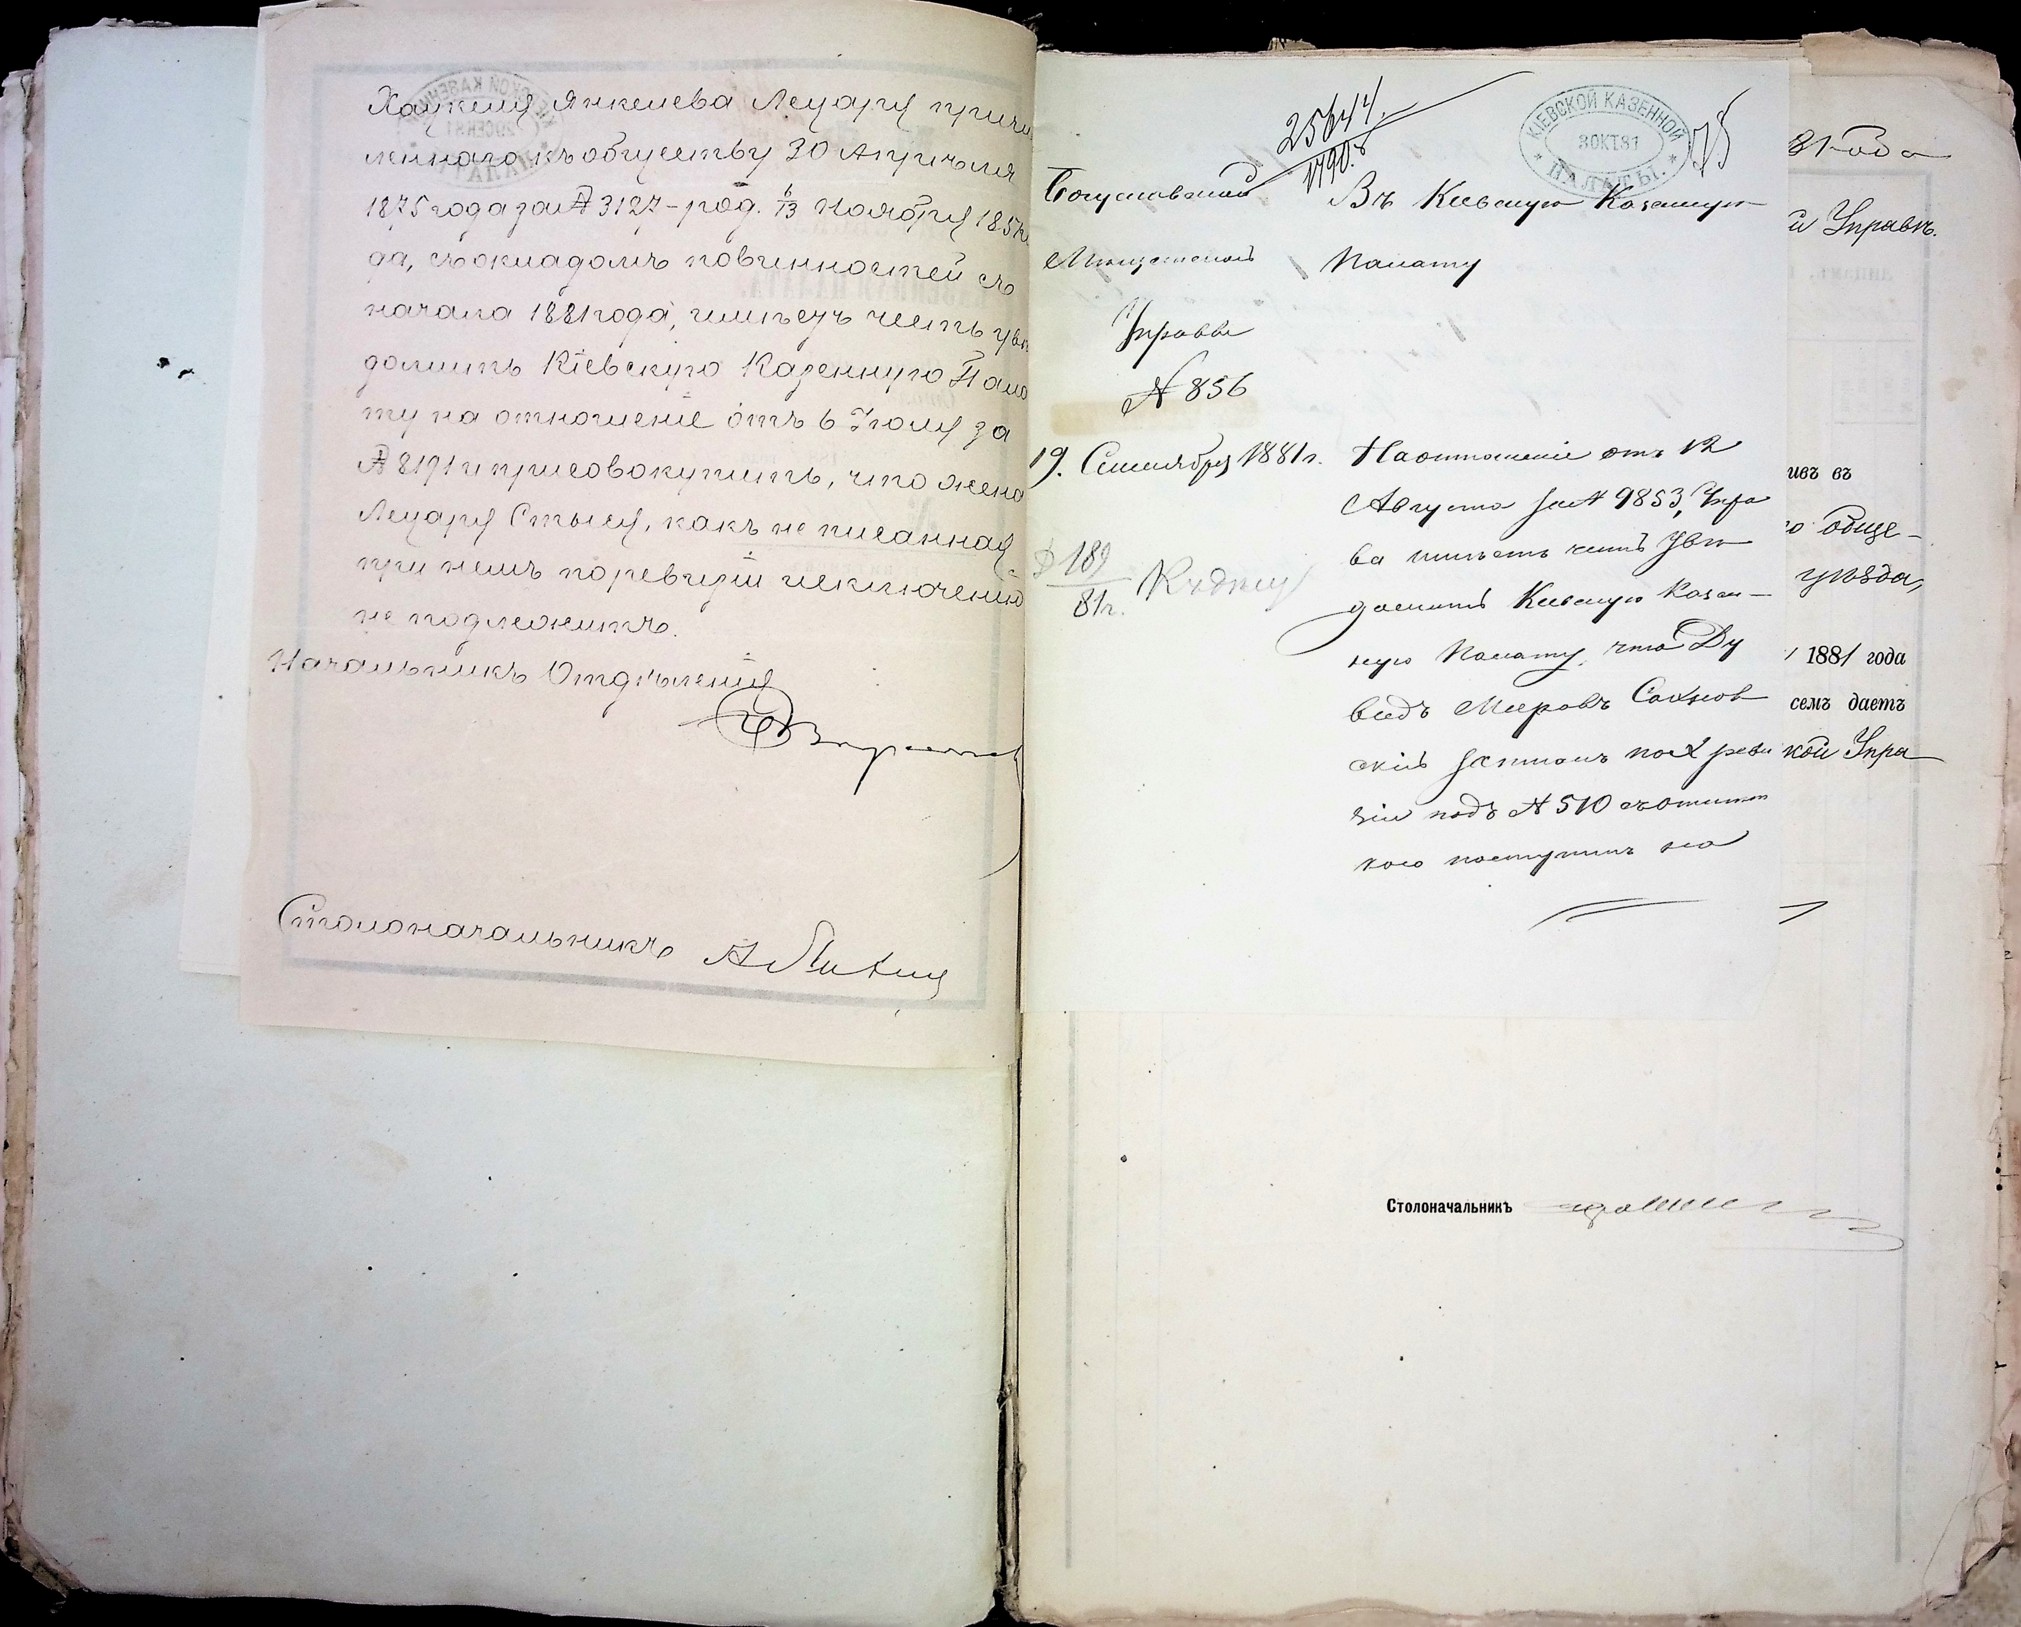 Хаскеля Янкелева Лецару причи
сленнаго къ обществу 30 Апрѣля
1875 года за № 3127 - род. 6/13 Ноября 1857 го
да, съ окладомъ повинностей съ
начала 1881 года, имѣетъ честь уве
домить Кіевскую Казенную Пала
ту на отношеніе отъ 6 Іюля за
№ 8191 и присовокупить, что жена
Лецару Стыся, какъ не писанная
при немъ по ревизіи исключенію
не подлежитъ.
Начальникъ Отдѣленія
Столоначальникъ А
25644
1790
КІЕВСКОЙ КАЗЕННОЙ
3 ОКТ 81
ПАЛАТЫ.
75
Богуславской
Мѣщанской
Управы
№ 856
19. Сентября 1881 г.
189
81 г.
Въ Кіевскую Казенную
Палату
На отношеніе отъ 12
Августа за № 9853, Упра
ва имѣетъ честь уве
домить Кіевскую Казен-
ную Палату, что Ду
видъ Мееровъ Сахнов
скій записанъ по X реви
зіи подъ № 510 съ отмет
кою поступилъ на
81 года
й Управѣ.
ивъ въ
го обще-
уѣзда,
1881 года
семъ даетъ
кой Упра
Столоначальникъ